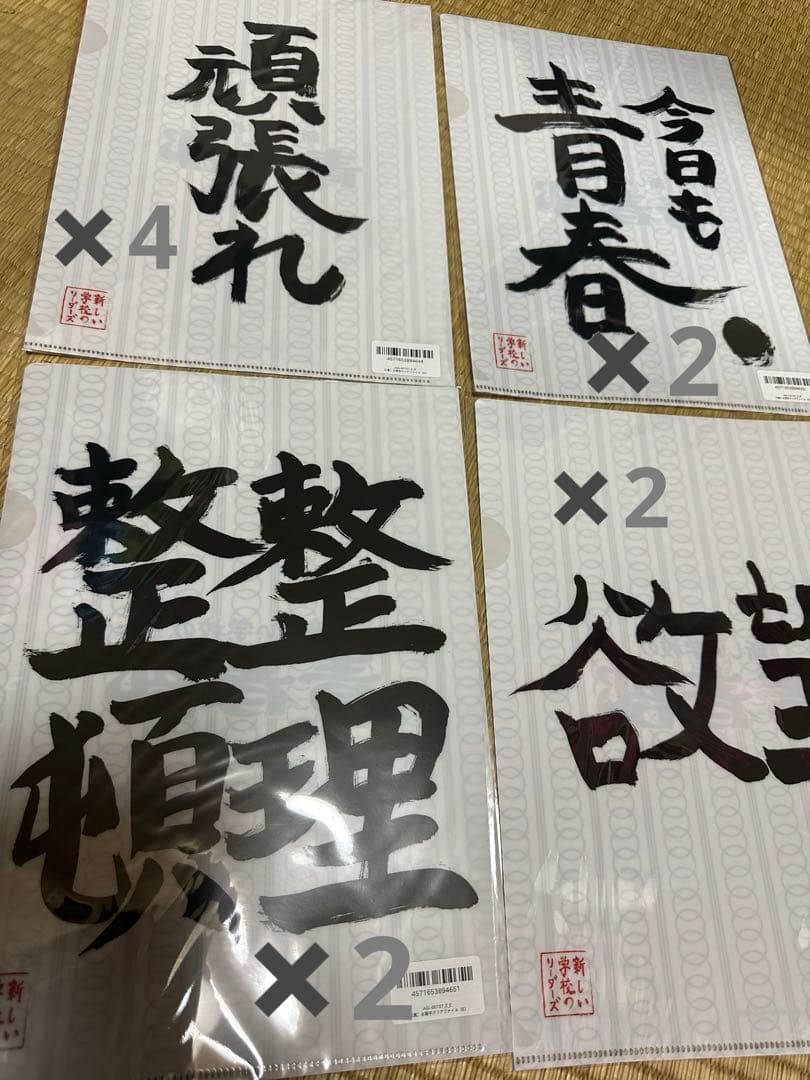 頑張れ
×4
新しい
学校の
リーダーズ
4571653894644
今日も
青春。
×2
新しい
学校の
リーダーズ
整理
整頓
×2
新しい
学校の
リーダーズ
4571653894651
×2
欲望
新しい
学校の
リーダーズ